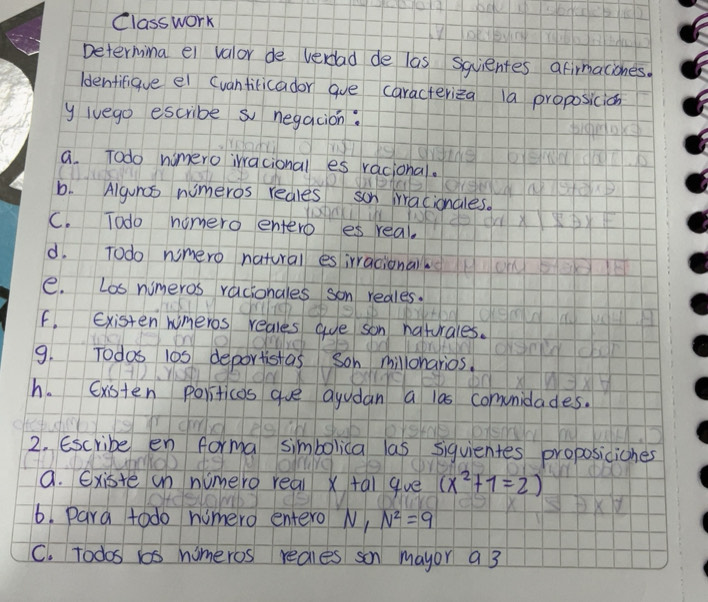 Classwork
Determina el valor de verdad de las sguientes afirmaciones.
Identifique el cuantificador que caracteriza la proposición
y luego escribe su negación:
a. Todo número irracional es racional.
b. Algunos números reales son irracionales.
C. Todo número entero es real.
d. Todo número natural es irracional.
e. Los números racionales son reales.
F. Existen números reales que son naturales.
g. Todos los deportistas son millonarios.
h. Existen políticos que ayudan a las comunidades.
2. Escribe en forma simbolica las siguientes proposiciones
a. Existe un número real x tal que (x²+1=2)
b. Para todo número entero N, N²=9
C. Todos los números reales son mayor a 3